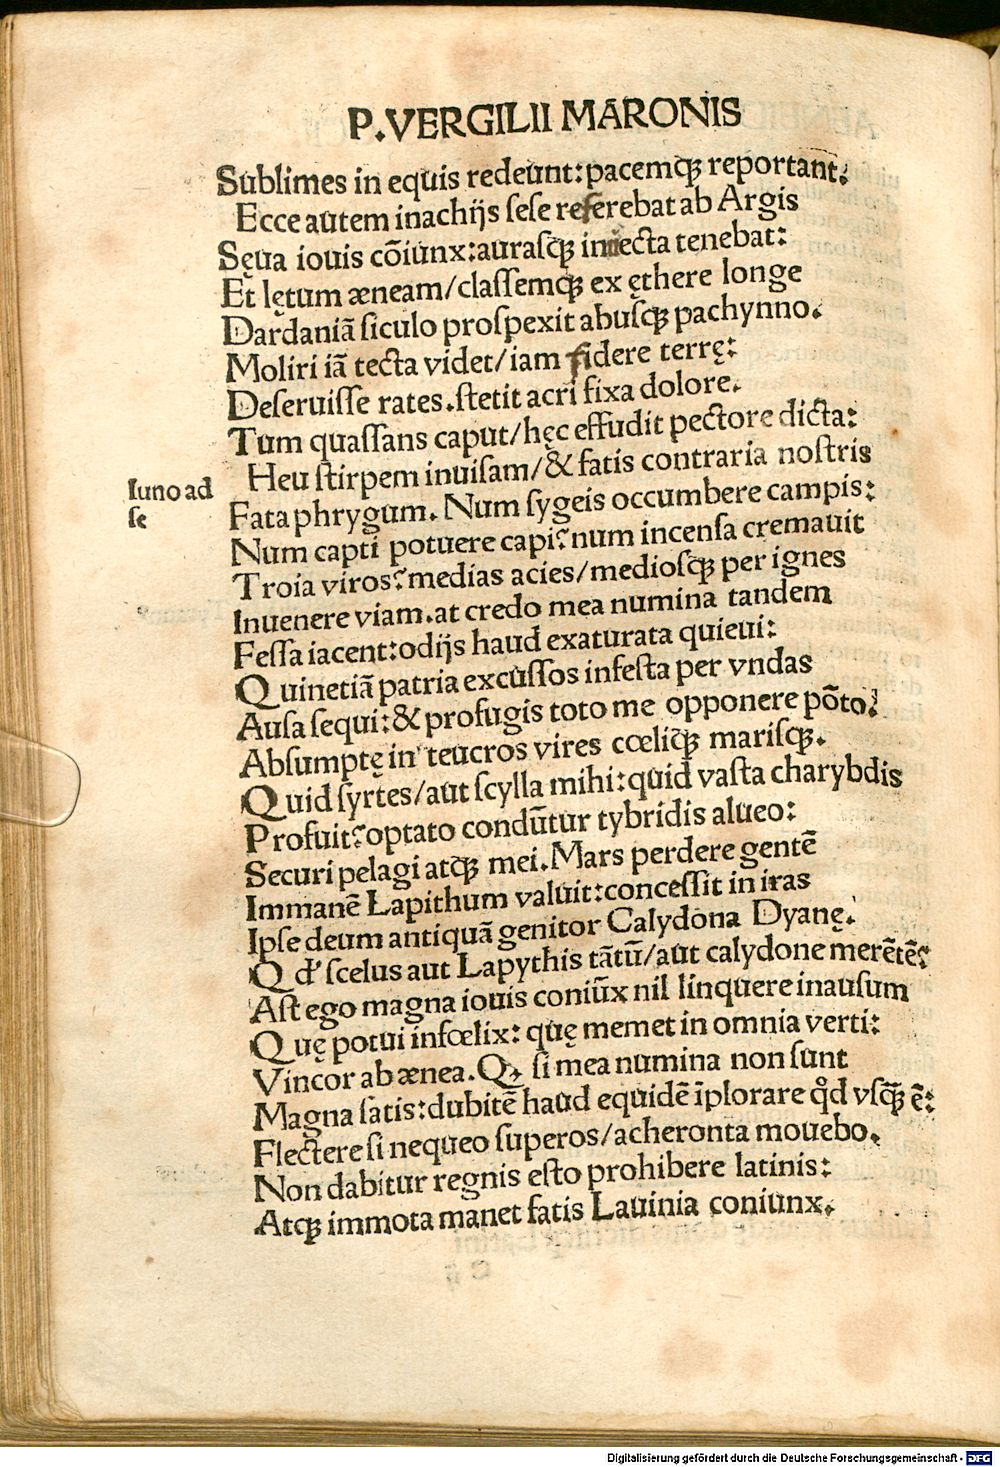 P.VERGILII MARONIS
Sublimes in equis redeunt: pacemqꝫ reportant.
Ecce autem inachijs ſeſe referebat ab Argis
Sęua iouis cõiunx: auraſqꝫ inuecta tenebat:
Et lętum æneam/claſſemqꝫ ex ęthere longe
Dardaniã ſiculo proſpexit abuſqꝫ pachynno.
Moliri iã tecta videt/iam fidere terrę:
Deſeruiſſe rates.ſtetit acri fixa dolore.
Tum quaſſans caput/hęc effudit pectore dicta:
Heu ſtirpem inuiſam/& fatis contraria noſtris
Iuno ad
ſe
Fata phrygum. Num ſygeis occumbere campis:
Num capti potuere capi? num incenſa cremauit
Troia viros? medias acies/medioſqꝫ per ignes
Inuenere viam.at credo mea numina tandem
Feſſa iacent: odijs haud exaturata quieui:
Quinetiã patria excuſſos infeſta per vndas
Auſa ſequi: & profugis toto me opponere põto.
Abſumptę in teucros vires cœliqꝫ mariſqꝫ.
Quid ſyrtes/aut ſcylla mihi: quid vaſta charybdis
Profuit? optato condũtur tybridis alueo:
Securi pelagi atqꝫ mei. Mars perdere gentẽ
Immanẽ Lapithum valuit: conceſſit in iras
Ipſe deum antiquã genitor Calydona Dyanę.
Qd' ſcelus aut Lapythis tãtũ/aut calydone merẽtẽ?
Aſt ego magna iouis coniũx nil linquere inauſum
Quę potui infœlix: quę memet in omnia verti:
Vincor ab ænea. Qꝫ ſi mea numina non ſunt
Magna ſatis: dubitẽ haud equidẽ ĩplorare qd vſqꝫ ẽ:
Flectere ſi nequeo ſuperos/acheronta mouebo.
Non dabitur regnis eſto prohibere latinis:
Atqꝫ immota manet fatis Lauinia coniunx.
Digitalisierung gefördert durch die Deutsche Forschungsgemeinschaft - DFG